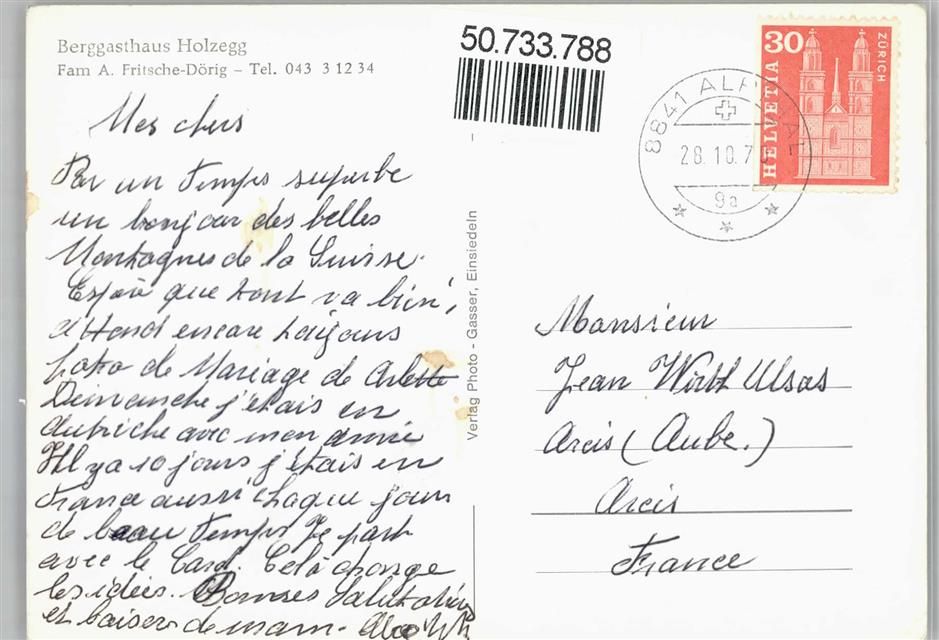 Berggasthaus Holzegg
Fam A. Fritsche-Dörig – Tel. 043 3 12 34
50.733.788
Mes chers
Par un temps superbe
un bonjour des belles
Montagnes de la Suisse.
que tout va bien,
d'Attend encore toujours
foto de Mariage de Arlette
Dimanche j'étais en
Autriche avec mon amie
Il y a 10 jours j'étais en
France aussi chaque jour
de beau temps Je part
avec le Card. Celà change
les idées. Bonnes Salutations
et baisers de mam.
Verlag Photo - Gasser, Einsiedeln
8841 ALPTHAL
28.10.7
9a
30
HELVETIA
ZÜRICH
Monsieur
Jean Wirth Ulsas
Arcis (Aube.)
Arcis
France